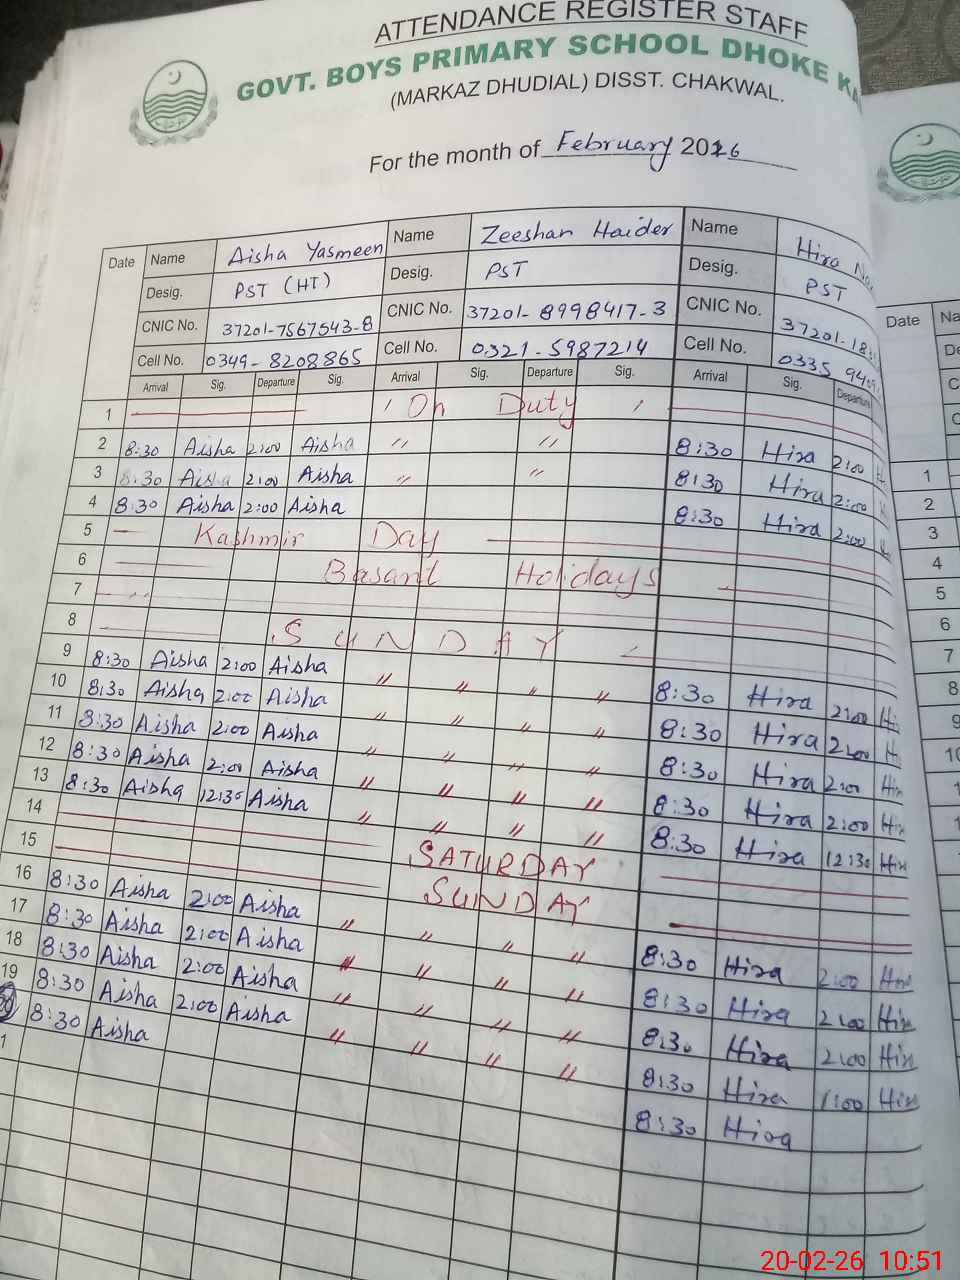 ATTENDANCE REGISTER STAFF
GOVT. BOYS PRIMARY SCHOOL DHOKE KA
(MARKAZ DHUDIAL) DISST. CHAKWAL.
For the month of February 2026
Date Name Aisha Yasmeen Name Zeeshan Haider Name Hira
Desig. PST (HT) Desig. PST Desig. PST
CNIC No. 37201-7567543-8 CNIC No. 37201-8998417-3 CNIC No. 37201-18
Cell No. 0349-8208865 Cell No. 0321-5987214 Cell No. 0335
Arrival Sig. Departure Sig. Arrival Sig. Departure Sig. Arrival Sig. Departure
1 On Duty
2 8:30 Aisha 2:00 Aisha " " 8:30 Hira 2:00
3 8:30 Aisha 2:00 Aisha " " 8:30 Hira 2:00
4 8:30 Aisha 2:00 Aisha 8:30 Hira 2:00
5 Kashmir Day
6 Basant Holidays
7
8 SUNDAY
9 8:30 Aisha 2:00 Aisha " " " " 8:30 Hira 2:00 Hi
10 8:30 Aisha 2:00 Aisha " " " " 8:30 Hira 2:00 Hi
11 8:30 Aisha 2:00 Aisha " " " " 8:30 Hira 2:00 Hir
12 8:30 Aisha 2:00 Aisha " " " " 8:30 Hira 2:00 Hir
13 8:30 Aisha 12:30 Aisha " " " " 8:30 Hira 12:30 Hir
14 SATURDAY
15 SUNDAY
16 8:30 Aisha 2:00 Aisha " " " " 8:30 Hira 2:00 Hir
17 8:30 Aisha 2:00 Aisha " " " " 8:30 Hira 2:00 Hir
18 8:30 Aisha 2:00 Aisha " " " " 8:30 Hira 2:00 Hir
19 8:30 Aisha 2:00 Aisha " " " " 8:30 Hira 1:00 Hir
20 8:30 Aisha 8:30 Hira
1
Date Na
De
C
C
1
2
3
4
5
6
7
8
9
10
20-02-26 10:51